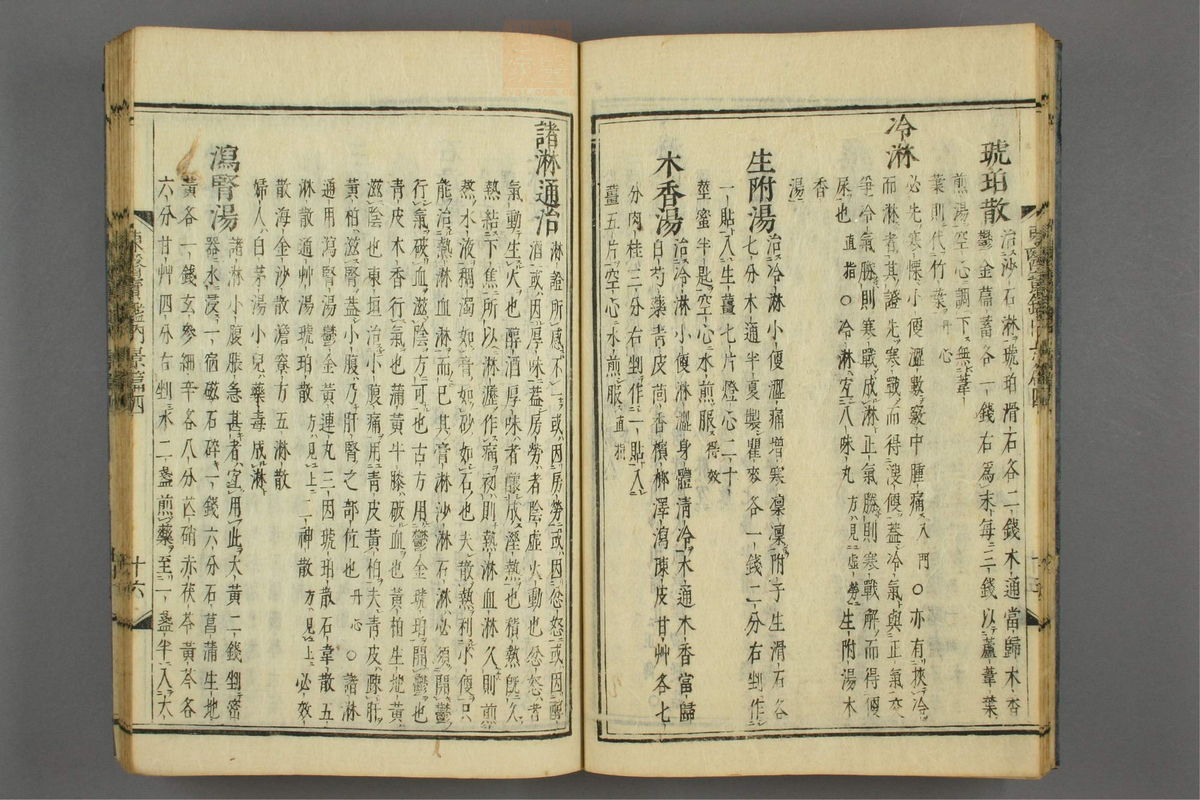 琥珀散 治沙石淋琥珀滑石各二錢木通當歸木香
鬱金萹蓄各一錢右爲末每三錢以蘆葦葉
煎湯空心調下無葦
葉則代竹葉丹心
冷淋 必先寒慄小便澁數竅中腫痛入門○亦有挾冷
而淋者其證先寒戰而得溲便盖冷氣與正氣交
爭冷氣勝則寒戰成淋正氣勝則寒戰解而得便
尿也直指○冷淋宜八味丸方見虛勞生附湯木
香
湯
生附湯 治冷淋小便澁痛增寒凜凜附子生滑石各
七分木通半夏製瞿麥各一錢二分右剉作
一貼入生薑七片燈心二十
莖蜜半匙空心水煎服得效
木香湯 治冷淋小便淋澁身體清冷木通木香當歸
白芍藥靑皮茴香檳榔澤瀉陳皮甘艸各七
分肉桂三分右剉作一貼入
薑五片空心水煎服直指
諸淋通治 淋證所感不一或因房勞或因忿怒或因醇
酒或因厚味盖房勞者陰虛火動也忿怒者
氣動生火也醇酒厚味者釀成溼熱也積熱旣久
熱結下焦所以淋瀝作痛初則熱淋血淋久則煎
熬水液稠濁如膏如砂如石也夫散熱利小便只
能治熱淋血淋而已其膏淋沙淋石淋必須開鬱
行氣破血滋陰方可也古方用鬱金琥珀開鬱也
靑皮木香行氣也蒲黃牛膝破血也黃柏生地黃
滋陰也東垣治小腹痛用靑皮黃柏夫靑皮疎肝
黃柏滋腎盖小腹乃肝腎之部位也丹心○諸淋
通用瀉腎湯鬱金黃連丸三因琥珀散石韋散五
淋散通艸湯琥珀散方見上二神散方見上必效
散海金沙散澹寮方五淋散
婦人白茅湯小兒藥毒成淋
瀉腎湯 諸淋小腹脹急甚者宜用此大黃二錢剉密
器水浸一宿磁石碎一錢六分石菖蒲生地
黃各一錢玄參細辛各八分芒硝赤茯苓黃芩各
六分甘艸四分右剉水二盞煎藥至一盞半入大
東醫寶鑑內景篇四
十六